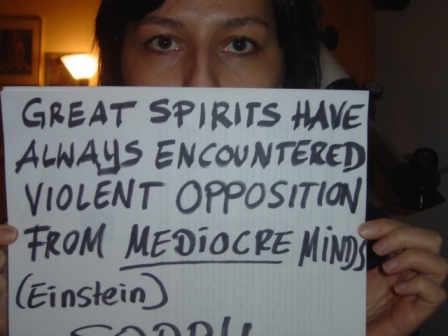 GREAT SPIRITS HAVE
ALWAYS ENCOUNTERED
VIOLENT OPPOSITION
FROM MEDIOCRE MINDS
(Einstein)